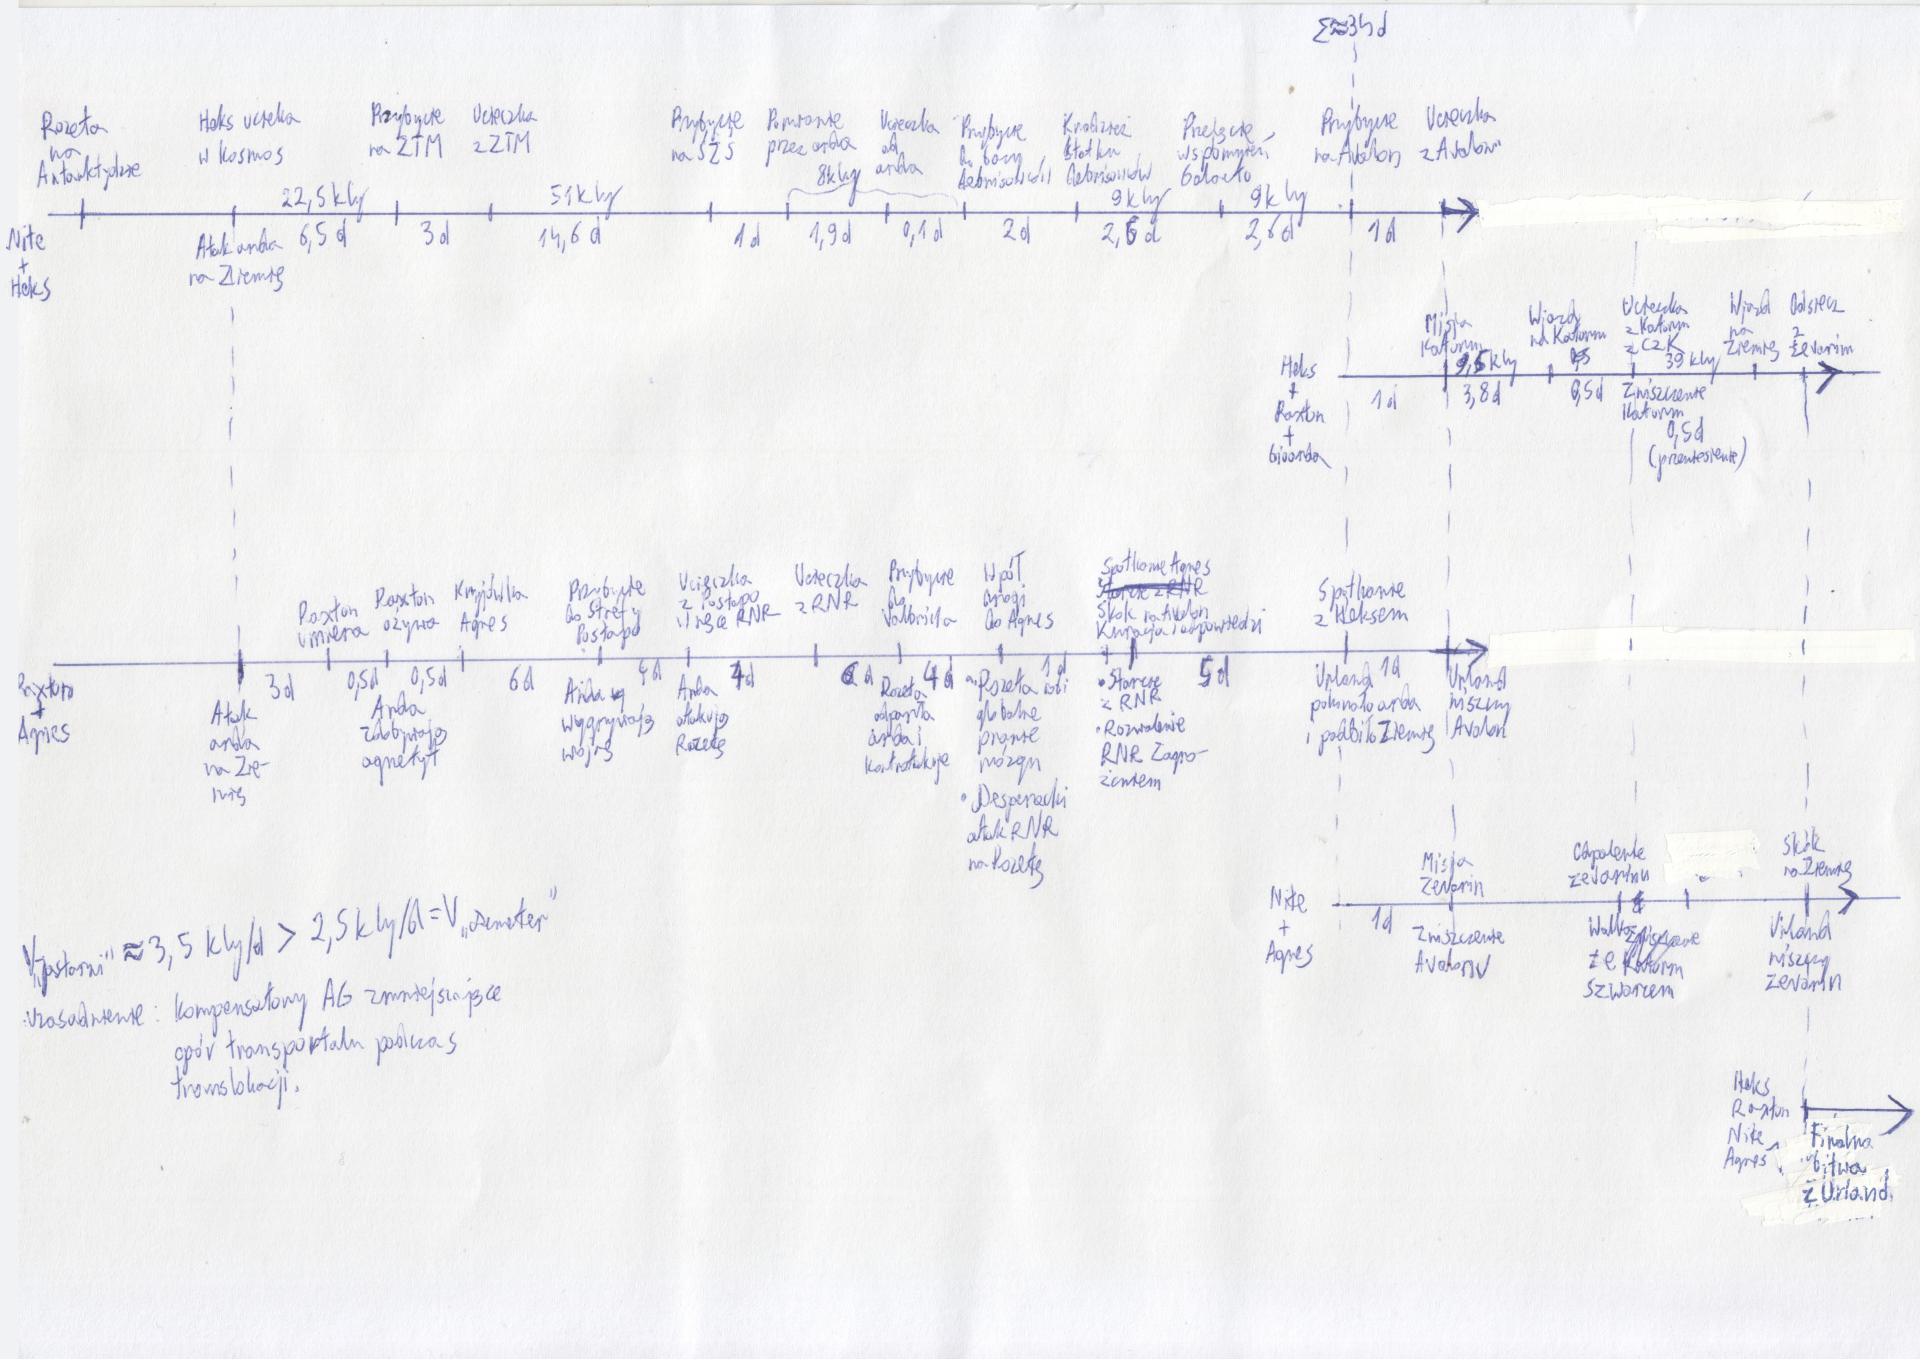 Σ≈34d
Rozeta
na
Antarktydzie
Heks ucieka
w kosmos
Przybycie
na ZTM
Ucieczka
z ZTM
Przybycie
na SZS
Porwanie
przez arda
Ucieczka
od
arda
Przybycie
do bazy
Kradzież
statku
Przejęcie
wspomnień
Galacto
Przybycie
na Avalon
Ucieczka
z Avalonu
22,5 kly
51 kly
8 kly
9 kly
9 kly
Nite
+
Heks
Atak arda
na Ziemię
6,5 d
3 d
14,6 d
1 d
1,9 d
0,1 d
2 d
2,6 d
2,6 d
1 d
Misja
Katorm
Wjazd
na Katorm
Ucieczka
z Katorm
z CZK
Wjazd
na
Ziemię
Odsiecz
z
Zevarim
Heks
+
Paxton
+
9,5 kly
39 kly
1 d
3,8 d
0,5 d
Zniszczenie
Katorm
0,5 d
(przeniesienie)
Paxton
umiera
Paxton
ożywa
Kryjówka
Agnes
Przybycie
do Strefy
Postapo
Ucieczka
z Postapo
w ręce RNR
Ucieczka
z RNR
Przybycie
do
Wpół
drogi
do Agnes
Spotkanie Agnes
Skok na Avalon
Kuracja i odpowiedzi
Spotkanie
z Heksem
Paxton
+
Agnes
Atak
arda
na Zie-
mię
3 d
0,5 d
0,5 d
6 d
4 d
4 d
4 d
1 d
5 d
1 d
Arda
zdobywają
agnetyt
Arda
wygrywają
wojnę
Arda
atakują
Rozetę
Rozeta
odparła
arda i
kontratakuje
• Rozeta robi
globalne
pranie
mózgu
• Desperacki
atak RNR
na Rozetę
• Starcie
z RNR
• Rozwalenie
RNR Zagro-
żeniem
Urland
pokonało arda
i podbiło Ziemię
Urland
niszczy
Avalon
Nite
+
Agnes
1 d
Misja
Zevarin
Zniszczenie
Avalonu
Odpalenie
Zevarinu
Walka
ze
Szwarcem
Katorm
Skok
na Ziemię
Urland
niszczy
Zevarin
≈ 3,5 kly/d > 2,5 kly/d = V„Demeter”
uzasadnienie: kompensatory AG zmniejszające
opór transportalu podczas
translokacji.
Heks
Paxton
Nite
Agnes
Finalna
bitwa
z Urland.